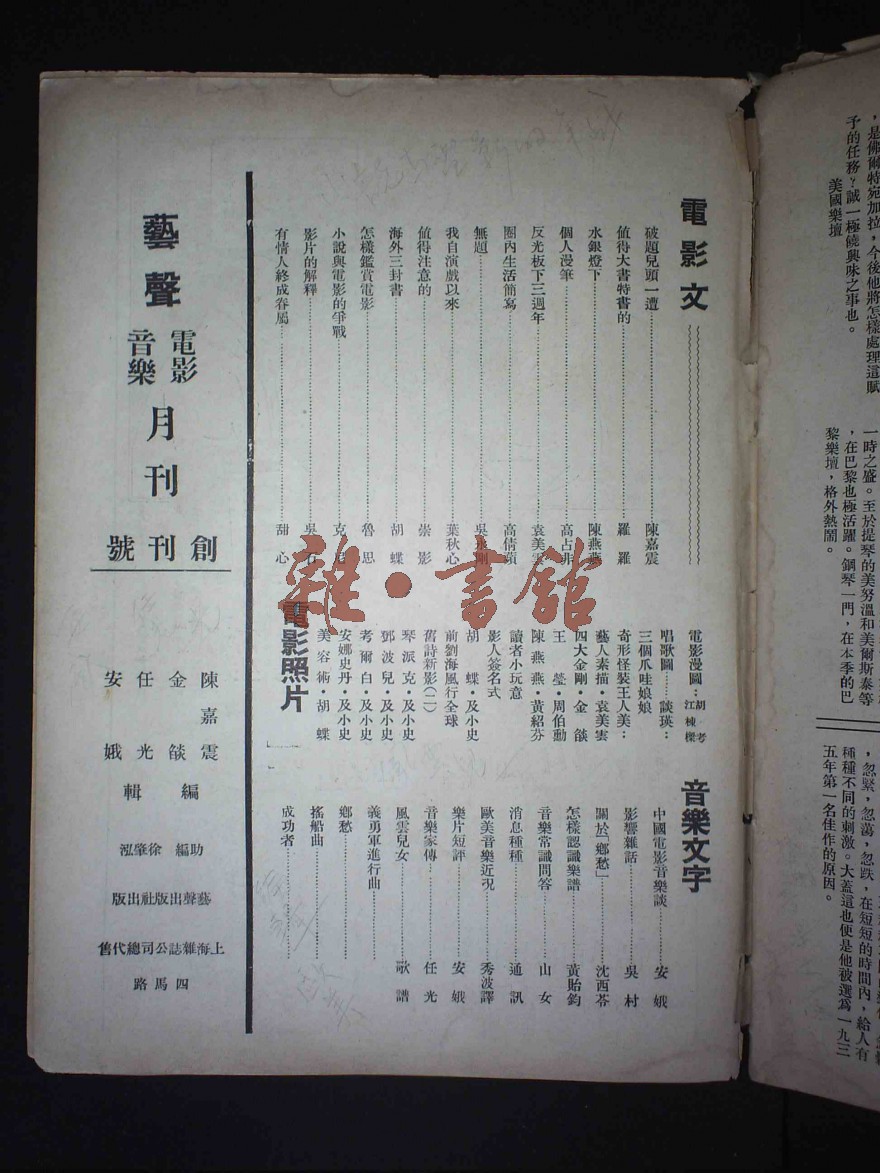 ，是佛爾特宛加拉，今後他將怎樣處理這賦
予的任務？誠一極饒興味之事也。
美國樂壇
一時之盛。至於提琴的美努溫和美爾斯泰等
，在巴黎也極活躍。鋼琴一門，在本季的巴
黎樂壇，格外熱鬧。
，忽緊，忽蕩，忽跌，在短短的時間內，給人有
種種不同的刺激。大蓋這也便是他被選爲一九三
五年第一名佳作的原因。
電影文
破題兒頭一遭 陳嘉震
值得大書特書的 羅羅
水銀燈下 陳燕燕
個人漫筆 高占非
反光板下三週年 袁美雲
圈內生活簡寫 高倩蘋
無題
我自演戲以來 葉秋心
值得注意的 崇影
海外三封書 胡蝶
怎樣鑑賞電影 魯思
小說與電影的爭戰
影片的解釋
有情人終成眷屬 甜心
電影漫畫：胡考 江棟樑
唱歌圖……談瑛：
三個爪哇娘娘
奇形怪裝王人美：
藝人素描・袁美雲
四大金剛・金燄
王瑩・周伯勳
陳燕燕・黃紹芬
讀者小玩意
影人簽名式
胡蝶・及小史
前劉海風行全球
舊詩新影(二)
琴派克・及小史
鄧波兒・及小史
考爾白・及小史
安娜史丹・及小史
美容術・胡蝶
電影照片
音樂文字
中國電影音樂談 安娥
影響雜話 吳村
關於「鄉愁」 沈西苓
怎樣認識樂譜 黃貽鈞
音樂常識問答 山女
消息種種 通訊
歐美音樂近況 秀波譯
樂片短評 安娥
音樂家傳 任光
風雲兒女 歌譜
義勇軍進行曲
鄉愁
搖船曲
成功者
藝聲
電影
音樂
月刊
創刊號
陳嘉震
金燄
任光
安娥
編輯
助編 徐肇泓
藝聲出版社出版
上海雜誌公司總代售
四馬路
雜・書館